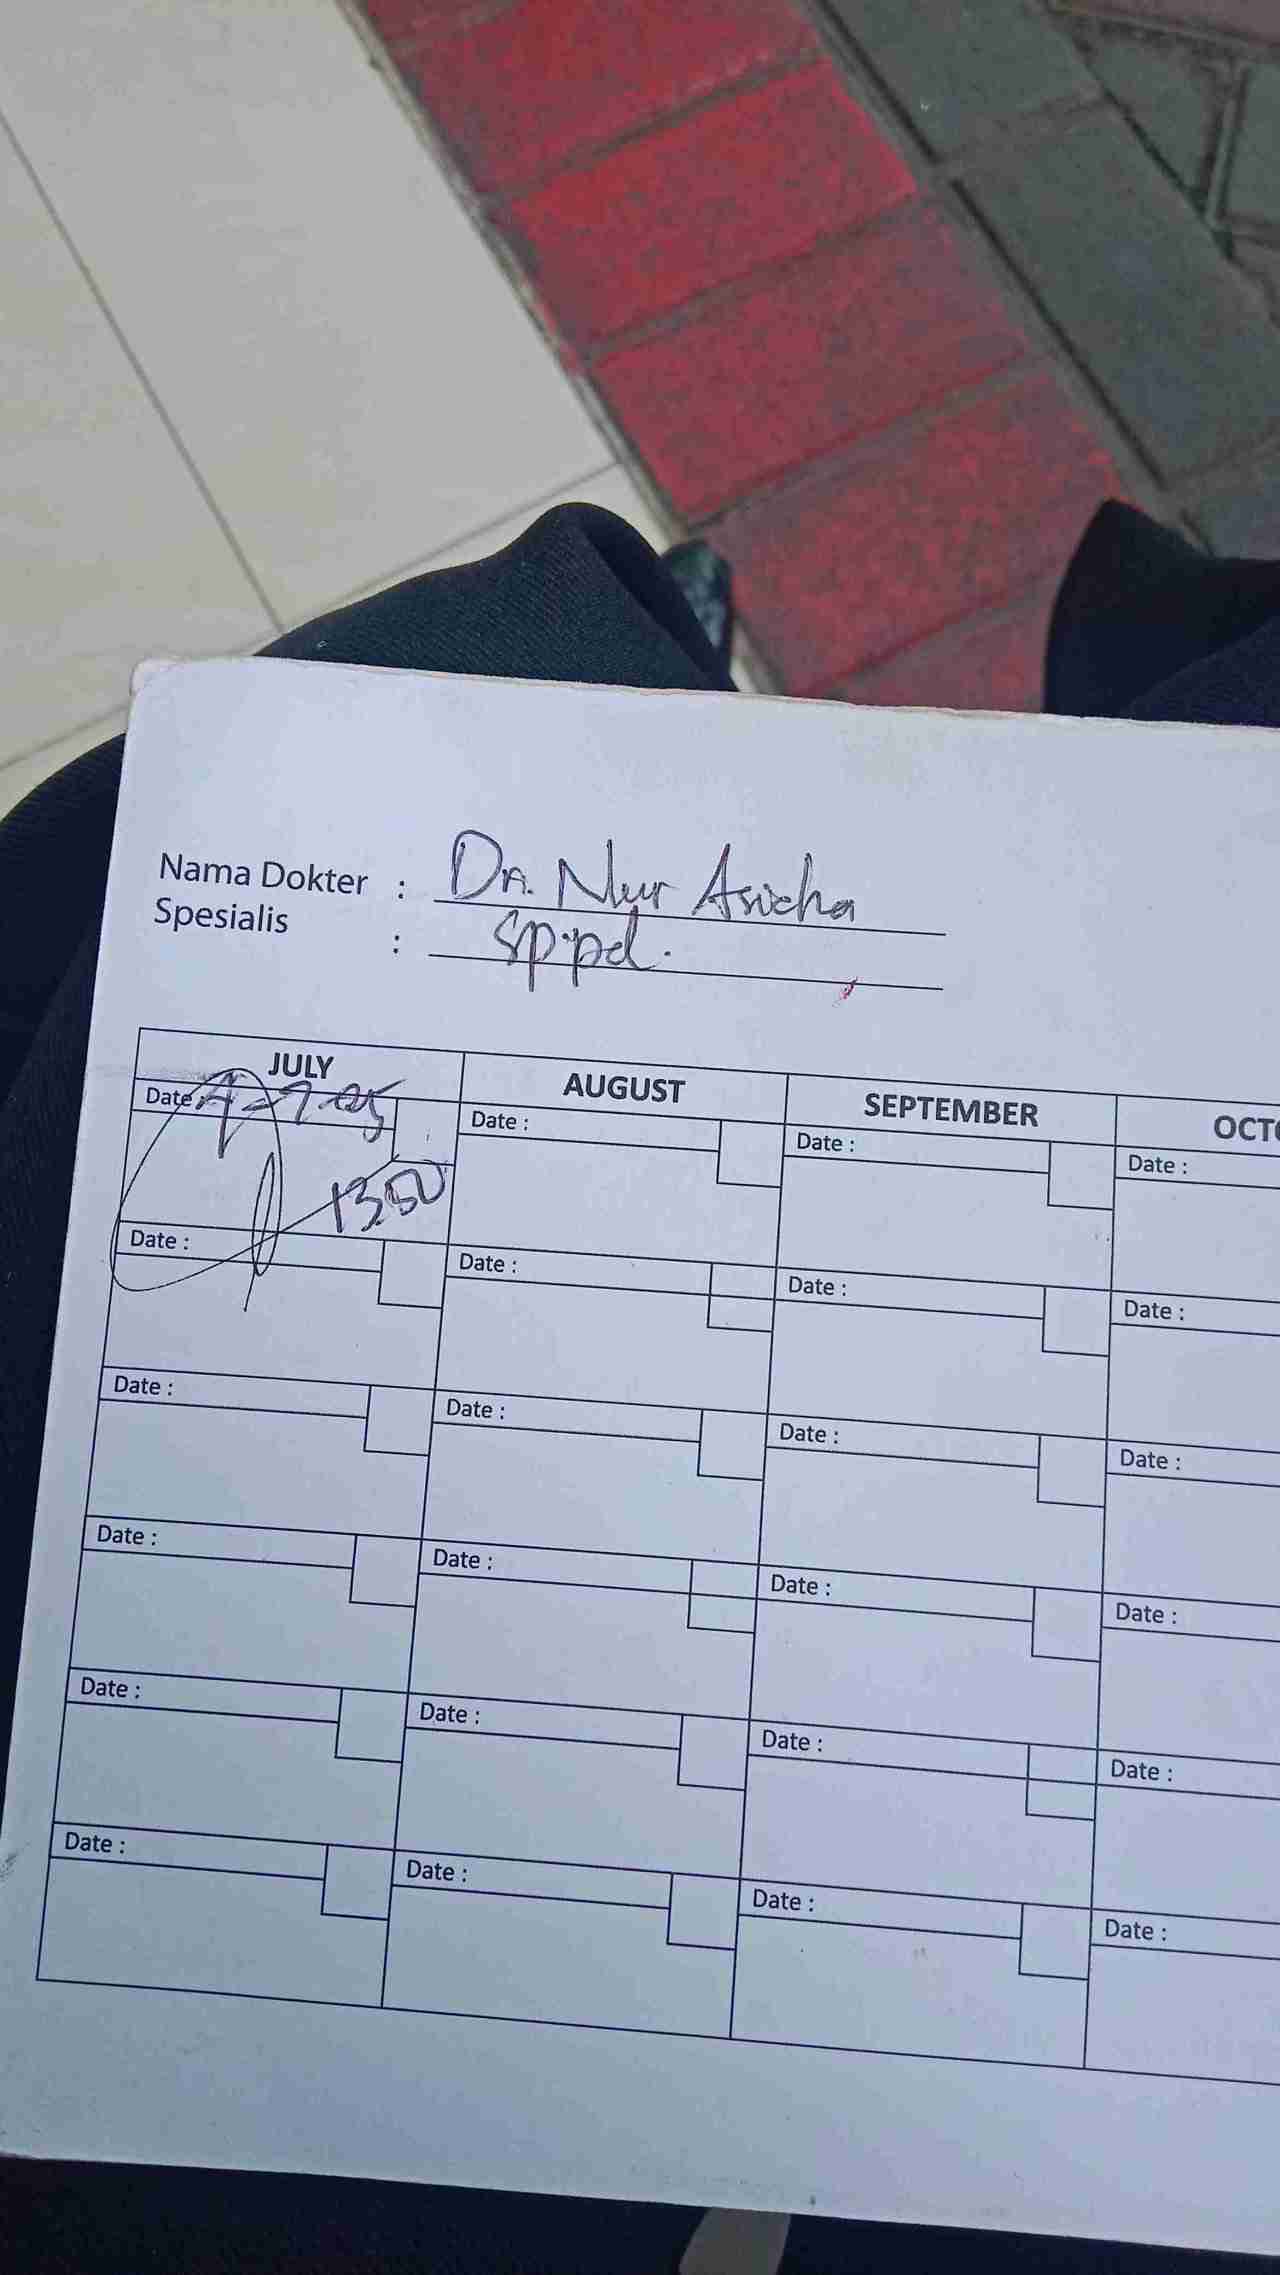 Nama Dokter : Dr. Nur Asicha
Spesialis : Sp.pd.
JULY AUGUST SEPTEMBER OCTO
Date Date : Date : Date :
1350
Date : Date : Date : Date :
Date : Date : Date : Date :
Date : Date : Date : Date :
Date : Date : Date : Date :
Date : Date : Date : Date :